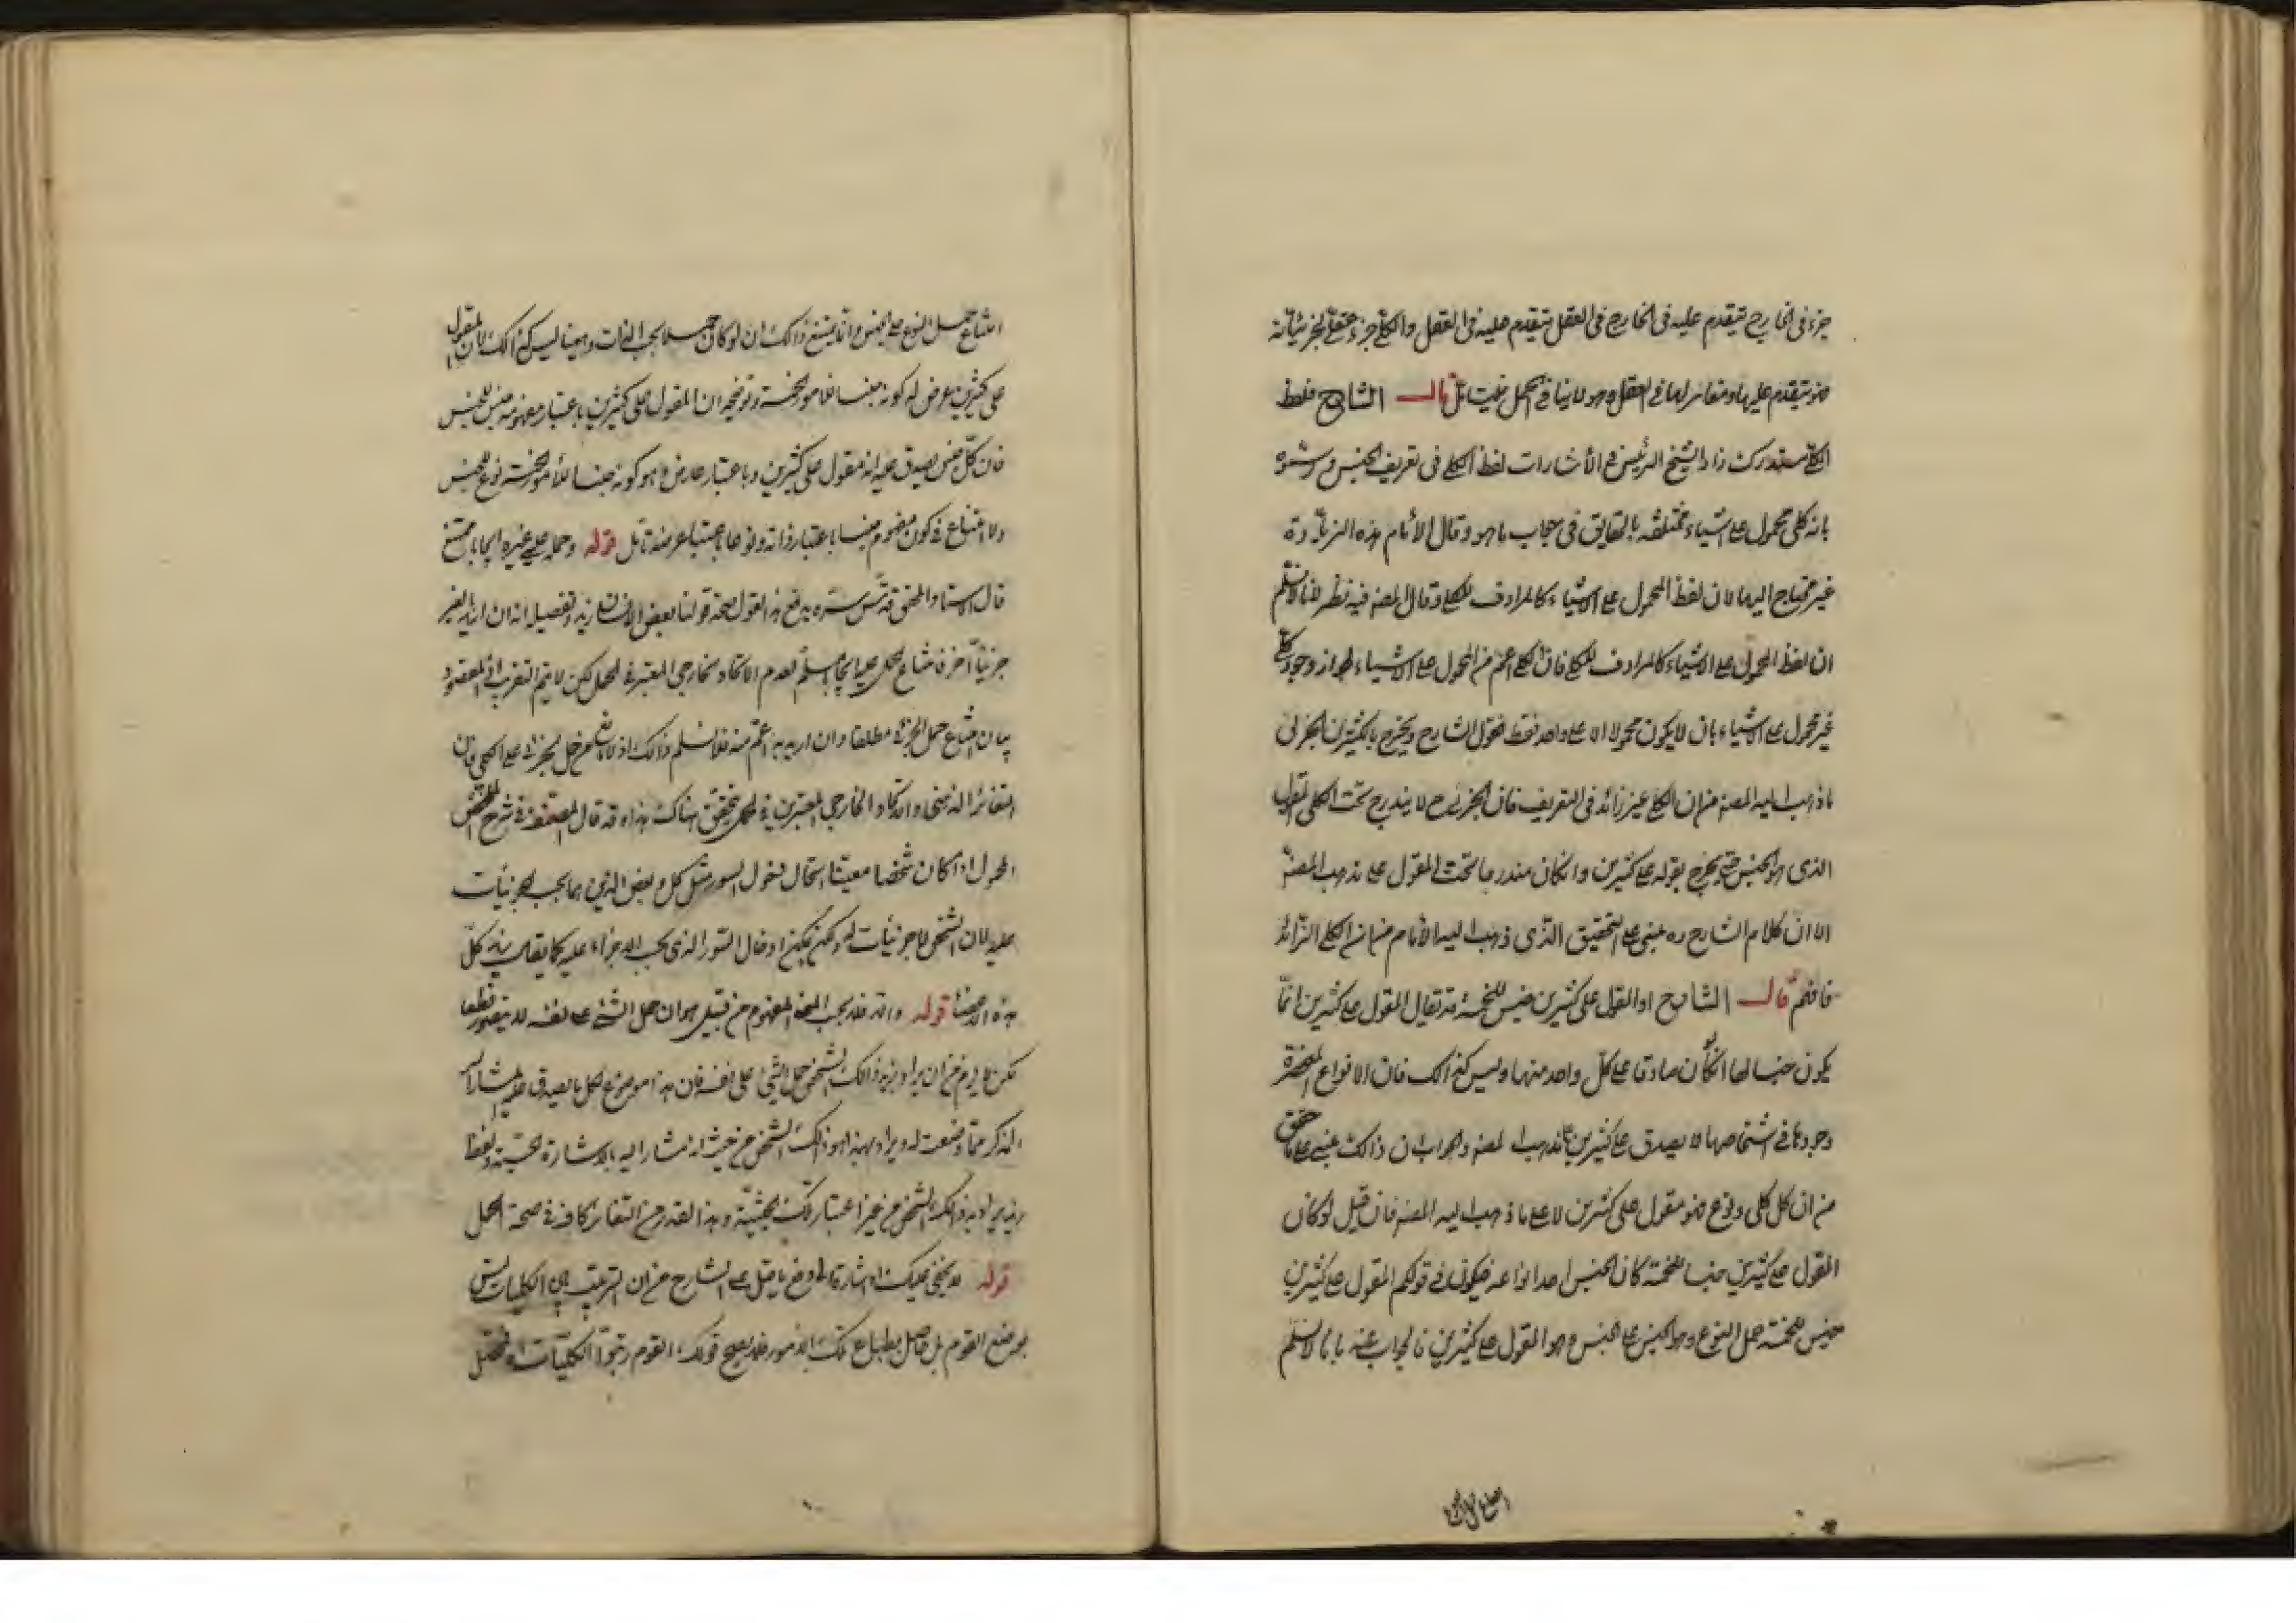 جزء فى الخارج يتقدم عليه فى الخارج و فى العقل يتقدم عليه فى العقل والكلى جزء عقلى لجزئياته
فهو يتقدم عليها و مغاير لها فى العقل وهو لا ينافى الحمل فليتأمل قال الشارح فلفظ
الكلى مستدرك زاد الشيخ الرئيس فى الأشارات لفظ الكلى فى تعريف الجنس ورسمه
بانه كلى محمول على اشياء مختلفة بالحقايق فى جواب ما هو وقال الأمام هذه الزيادة
غير محتاج اليها لان لفظ المحمول على الاشياء كالمرادف للكلى وقال المصنف فيه نظر لانا لا نسلم
ان لفظ المحمول على الاشياء كالمرادف للكلى فان الكلى اعم من المحمول على الاشياء لجواز وجود كلى
غير محمول على اشياء بان لا يكون محمولا الا على واحد فقط فقول الشارح ويخرج بالكثيرين الجزئى
ما ذهب اليه المصنف من ان الكلى غير زائد فى التعريف فان الجزئى ح لا يندرج تحت الكلى
الذى هو الجنس حتى يخرج بقوله على كثيرين وان كان مندرجا تحت المقول على مذهب المصنف
الا ان كلام الشارح ره مبنى على التحقيق الذى ذهب اليه الأمام من ان الكلى الزائد
فافهم قال الشارح اذ المقول على كثيرين جنس للخمسة قد يقال المقول على كثيرين انما
يكون جنسا لها ان كان صادقا على كل واحد منها وليس كذالك فان الانواع المنحصرة
وجودها فى اشخاصها لا يصدق على كثيرين كما ذهب المصنف والجواب ان ذالك مبنى على ما حقق
من ان كل كلى ونوع فهو مقول على كثيرين لا على ما ذهب اليه المصنف فان قيل لو كان
المقول على كثيرين جنسا للخمسة كان الجنس احد انواعه فيكون فى قولكم المقول على كثيرين
جنس للخمسة حمل النوع وهو الجنس على الجنس وهو المقول على كثيرين فالجواب عنه بانا لا نسلم
امتناع حمل النوع على الجنس وانما يمتنع ذالك ان لو كان حملا بحسب الذات وههنا ليس كذالك لان المقول
على كثيرين عرض له كونه جنسا للامور الخمسة وتوضيحه ان المقول على كثيرين باعتبار مفهومه جنس للجنس
فان كل جنس يصدق عليه انه مقول على كثيرين وباعتبار عارض وهو كونه جنسا للأمور الخمسة نوع للجنس
ولا امتناع فى كون مفهوم جنسا باعتبار ذاته ونوعا باعتبار عرضه تأمل قوله وحمله على غيره ايجابا ممتنع
قال الاستاد المحقق قدس سره يدفع هذا القول صحة قولنا بعض الانسان زيد وتفصيله انه ان اريد بالغير
جزئيا آخر فامتناع الحمل عليه ايجابا مسلم لعدم الاتحاد الخارجى المعتبر فى الحمل لكن لا يتم التقريب اذ المقصود
بيان امتناع حمل الجزئى مطلقا وان اريد به اعم منه فلا نسلم ذالك اذ لا مانع من حمل الجزئى على الكلى فان
التغائر الذهنى والاتحاد الخارجى المعتبرين فى الحمل متحقق هناك هذا وقد قال المصنف فى شرح الملخص
المحمول اذا كان شخصا معينا استحال دخول السور مثل كل وبعض الذين هما بحسب الجزئيات
عليه لان الشخص لا جزئيات له ولكن يمكن ادخال السور الذى بحسب الاجزاء عليه كما يقال زيد كل
هذه الاعضاء قوله والا فلا بحسب المعنى المفهوم من قيل هو ان حمل الشئ على نفسه لا يتصور قطعا
لكن لا يلزم من ان يراد بزيد ذالك الشخص حمل الشئ على نفسه فان هذا موضوع لكل ما يصدق عليه المشار اليه
المذكر مما وضعت له ويراد بهذا هو ذالك الشخص من حيث انه مشار اليه بالاشارة الحسية ولفظ
زيد يراد به ذالك الشخص من غير اعتبار تلك الحيثية وهذا القدر من التغاير كاف فى صحة الحمل
قوله لا يخفى عليك اشارة الى دفع ما قيل على الشارح من ان الترتيب بين الكليات ليس
بوضع القوم بل حاصل بطباع تلك الامور فلا يصح قولك القوم رتبوا الكليات